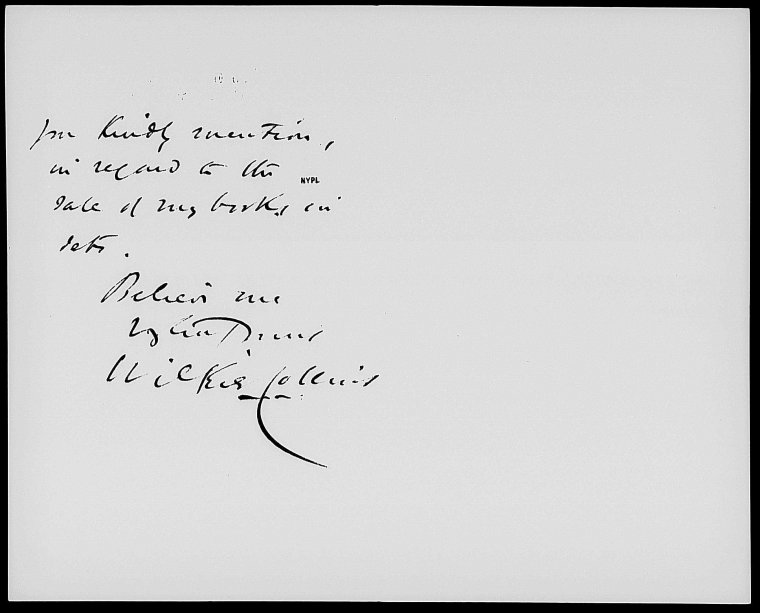 you kindly mention,
in regard to the
NYPL
sale of my books in
sets.
Believe me
Truly Yours
Wilkie Collins